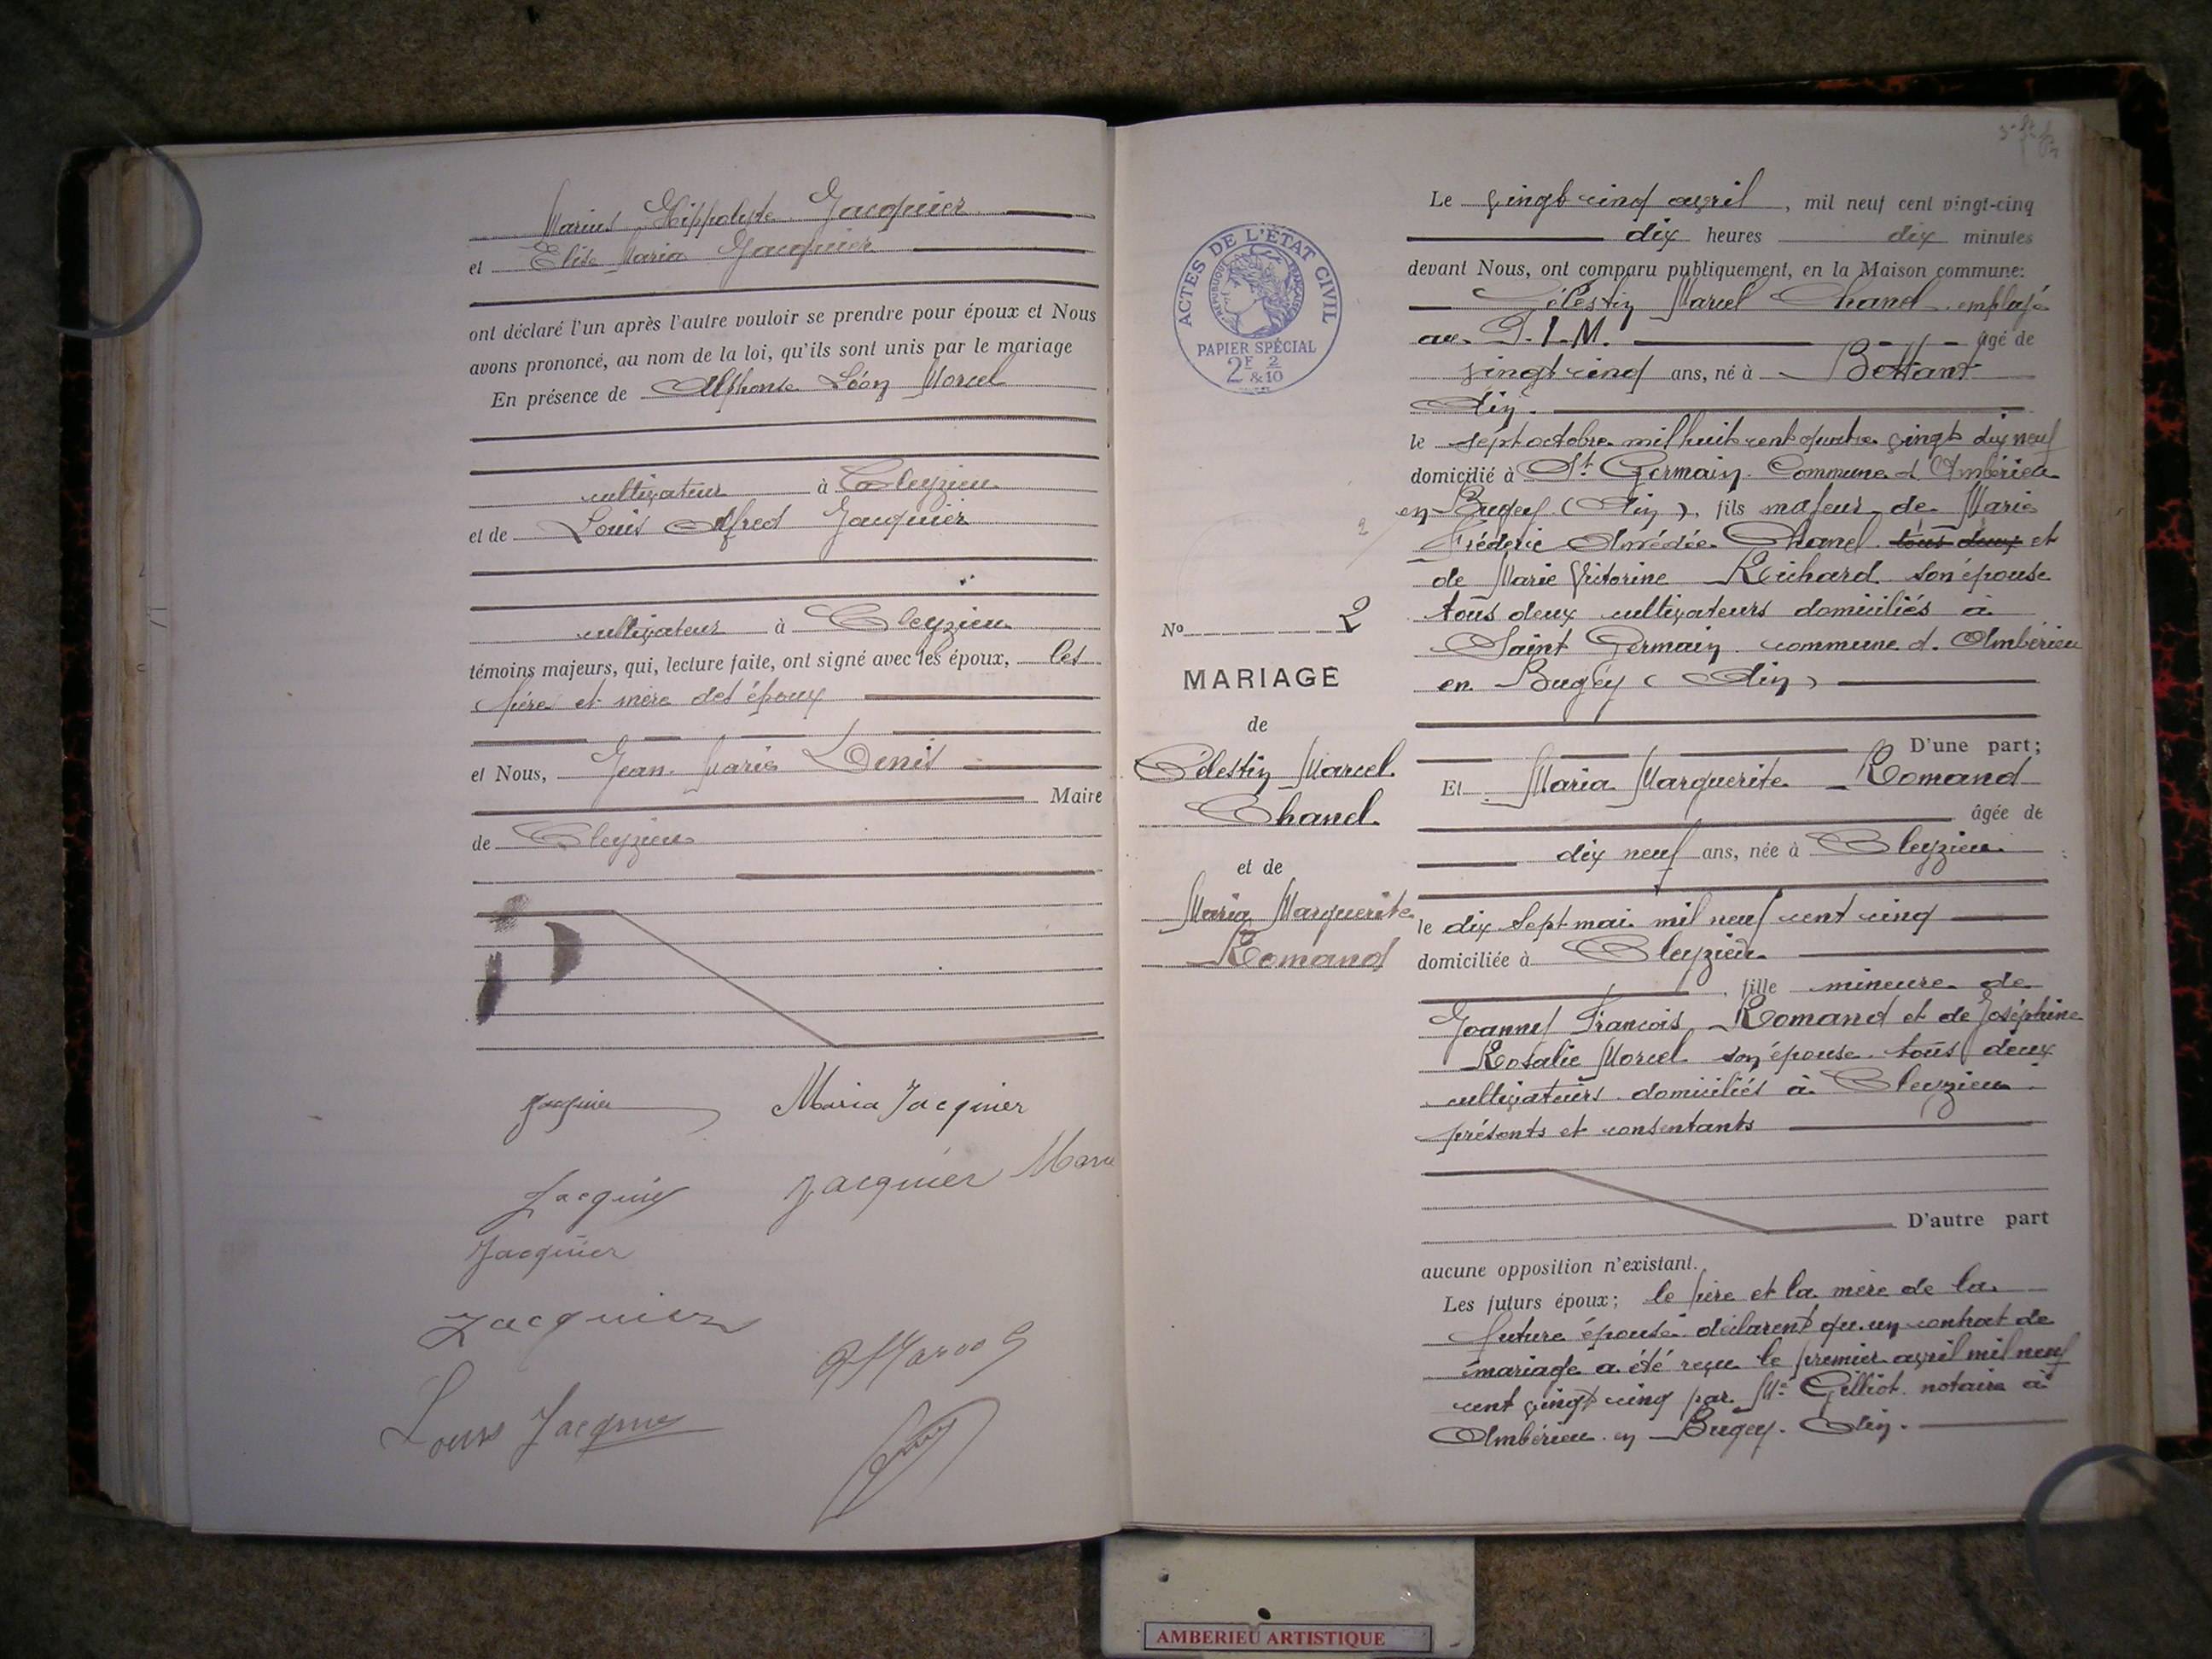 Marius Hippolyte Jacquier
et Elise Maria Jacquier
ont déclaré l'un après l'autre vouloir se prendre pour époux et Nous
avons prononcé, au nom de la loi, qu'ils sont unis par le mariage
En présence de Alphonse Léon Morcel
cultivateur à Cleyzieu
et de Louis Alfred Jacquier
cultivateur à Cleyzieu
témoins majeurs, qui, lecture faite, ont signé avec les époux, les
père et mère des époux
et Nous, Jean Marie Denis
Maire
de Cleyzieu
Jacquier
Maria Jacquier
Jacquier
Jacquier Marie
Jacquier
Jacquier
Louis Jacquier
ACTES DE L'ÉTAT CIVIL
RÉPUBLIQUE FRANÇAISE
PAPIER SPÉCIAL
2F 2
&10
No 2
MARIAGE
de
Célestin Marcel
Chanel
et de
Maria Marguerite
Romand
Le vingt cinq avril, mil neuf cent vingt-cinq
dix heures dix minutes
devant Nous, ont comparu publiquement, en la Maison commune:
Célestin Marcel Chanel employé
au P.L.M. âgé de
vingt cinq ans, né à Bettant
Ain.
le sept octobre mil huit cent quatre vingt dix neuf
domicilié à St Germain Commune d'Ambérieu
en Bugey (Ain), fils majeur de Marie
Fréderic Amédée Chanel tous deux et
de Marie Victorine Richard son épouse
tous deux cultivateurs domiciliés à
Saint Germain commune d'Ambérieu
en Bugey (Ain)
D'une part;
Et Maria Marguerite Romand
âgée de
dix neuf ans, née à Cleyzieu
le dix sept mai mil neuf cent cinq
domiciliée à Cleyzieu
, fille mineure de
Joannes François Romand et de Joséphine
Rosalie Morcel son épouse tous deux
cultivateurs domiciliés à Cleyzieu
présents et consentants
D'autre part
aucune opposition n'existant.
Les futurs époux; le père et la mère de la
future épouse déclarent qu'un contrat de
mariage a été reçu le premier avril mil neuf
cent vingt cinq par Me Gilliot notaire à
Ambérieu en Bugey. Ain.
AMBERIEU ARTISTIQUE